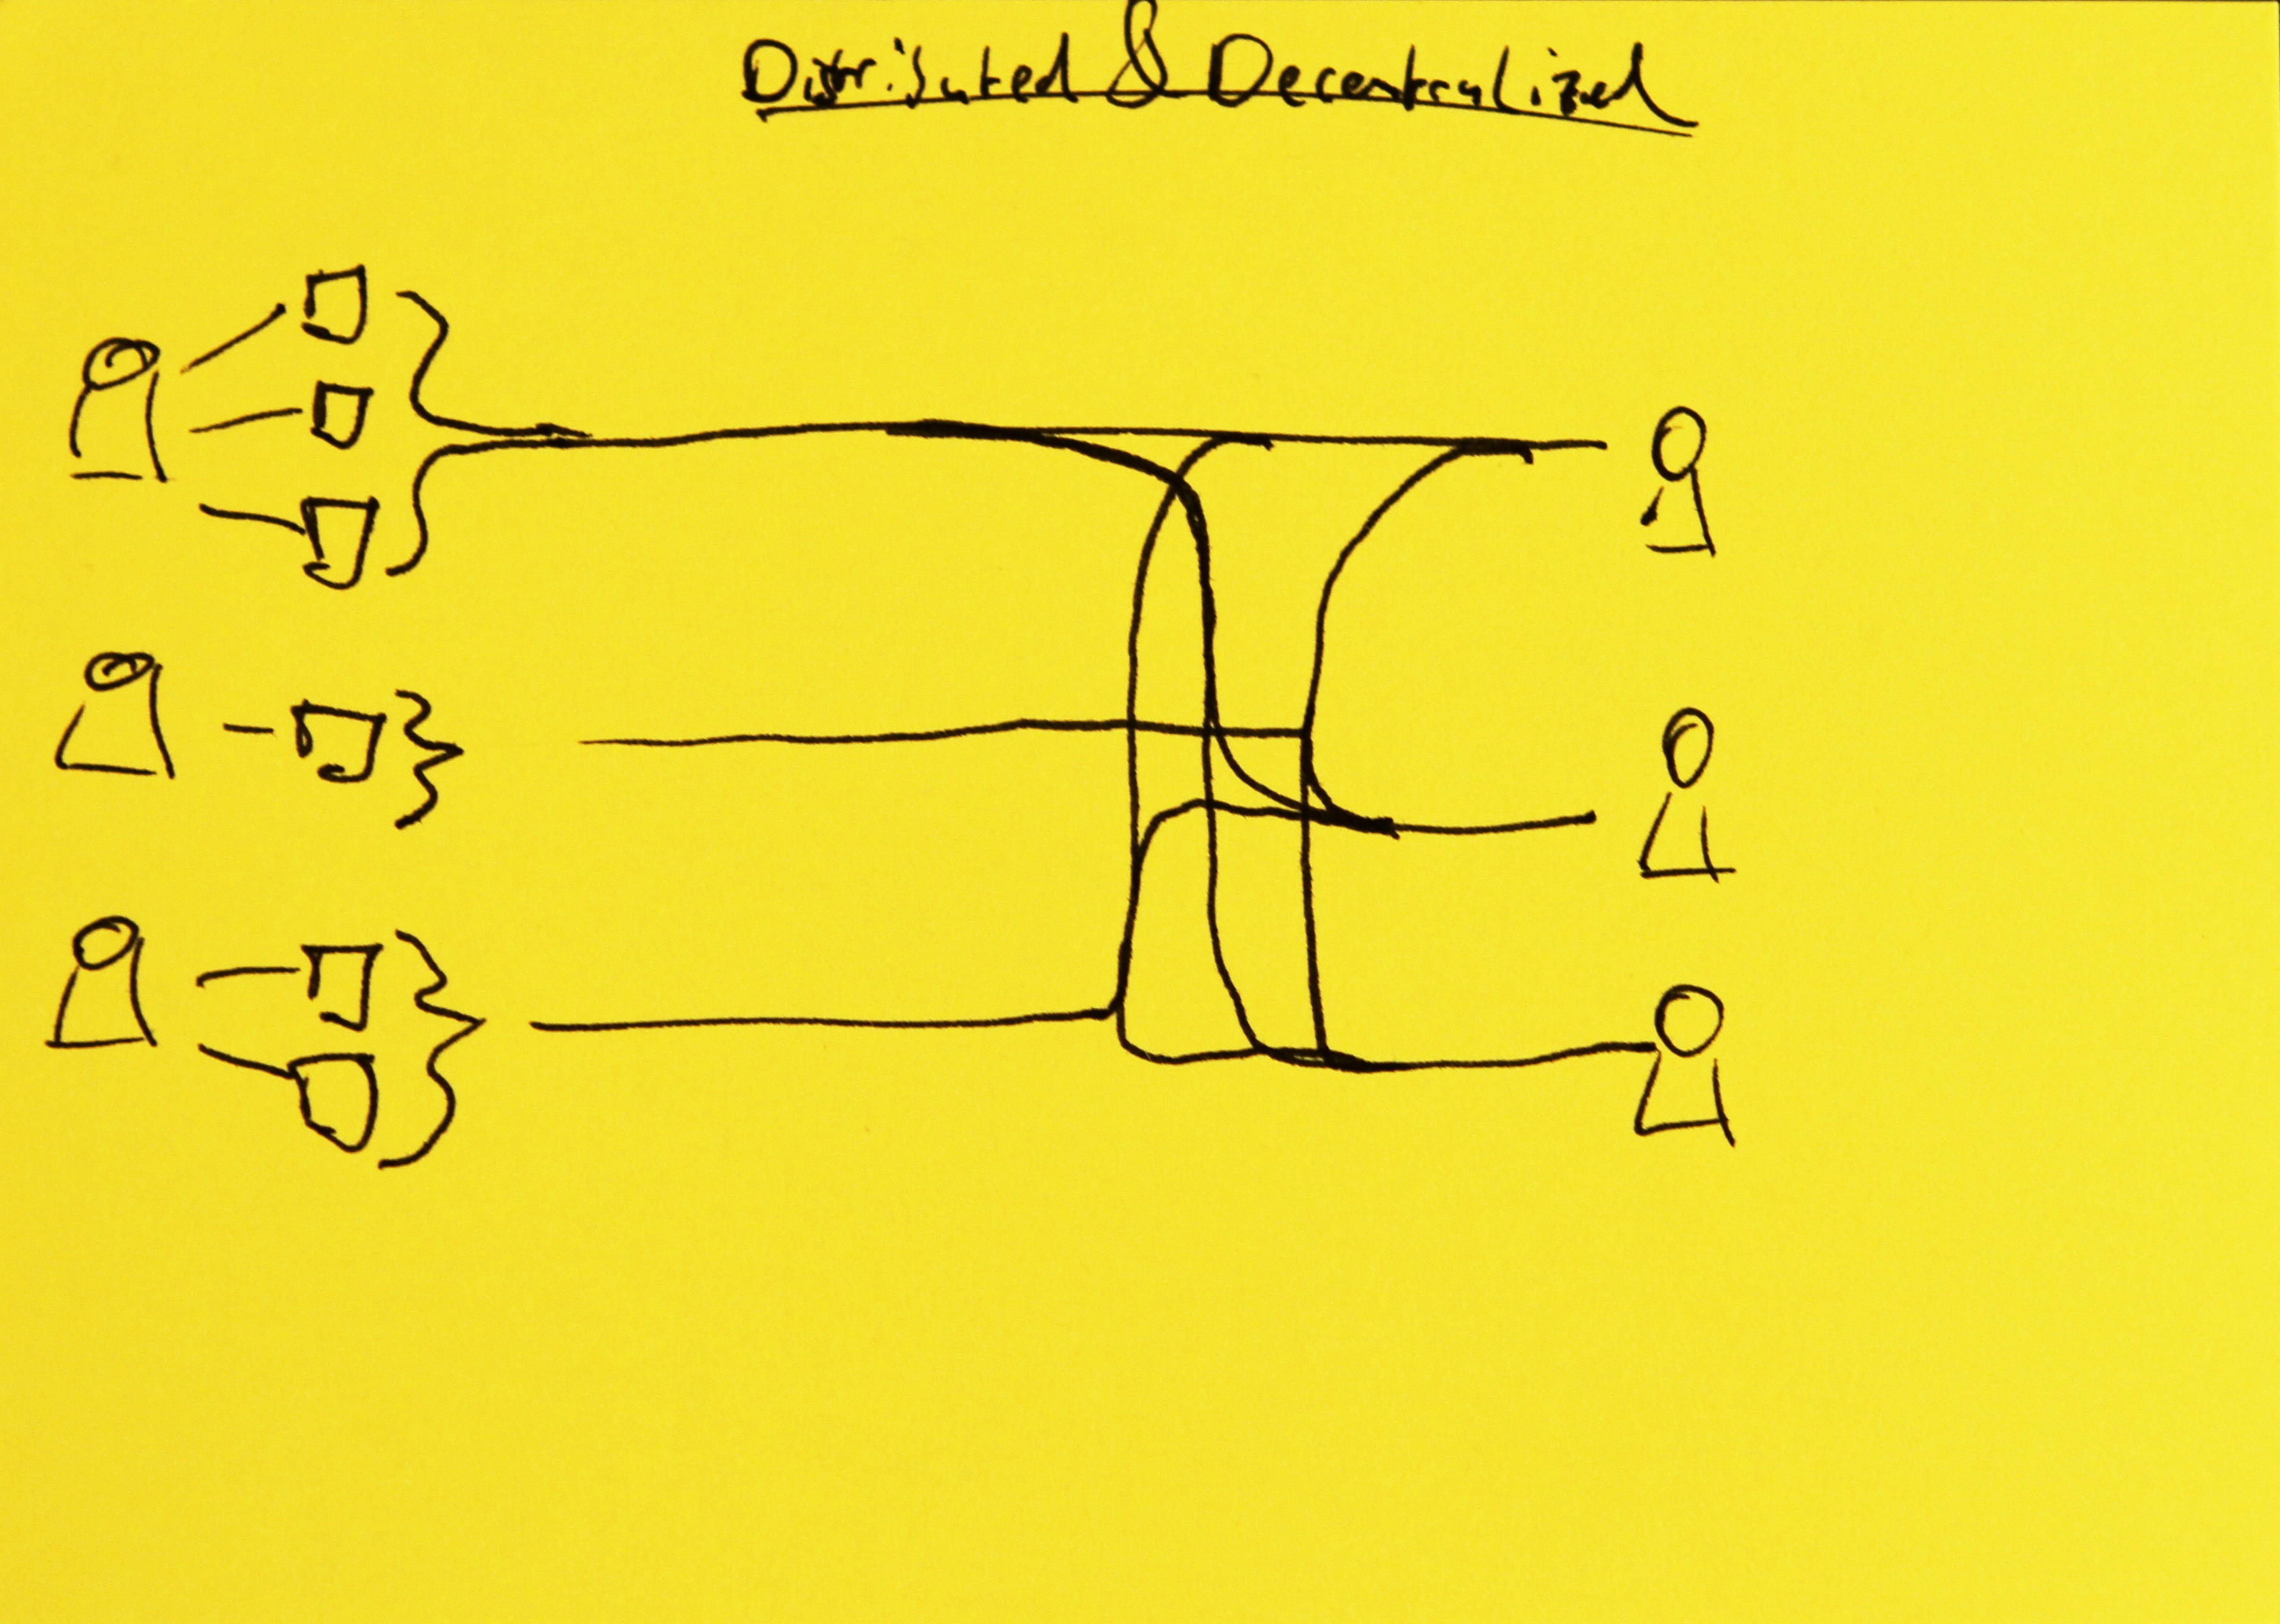 Distributed & Decentralized